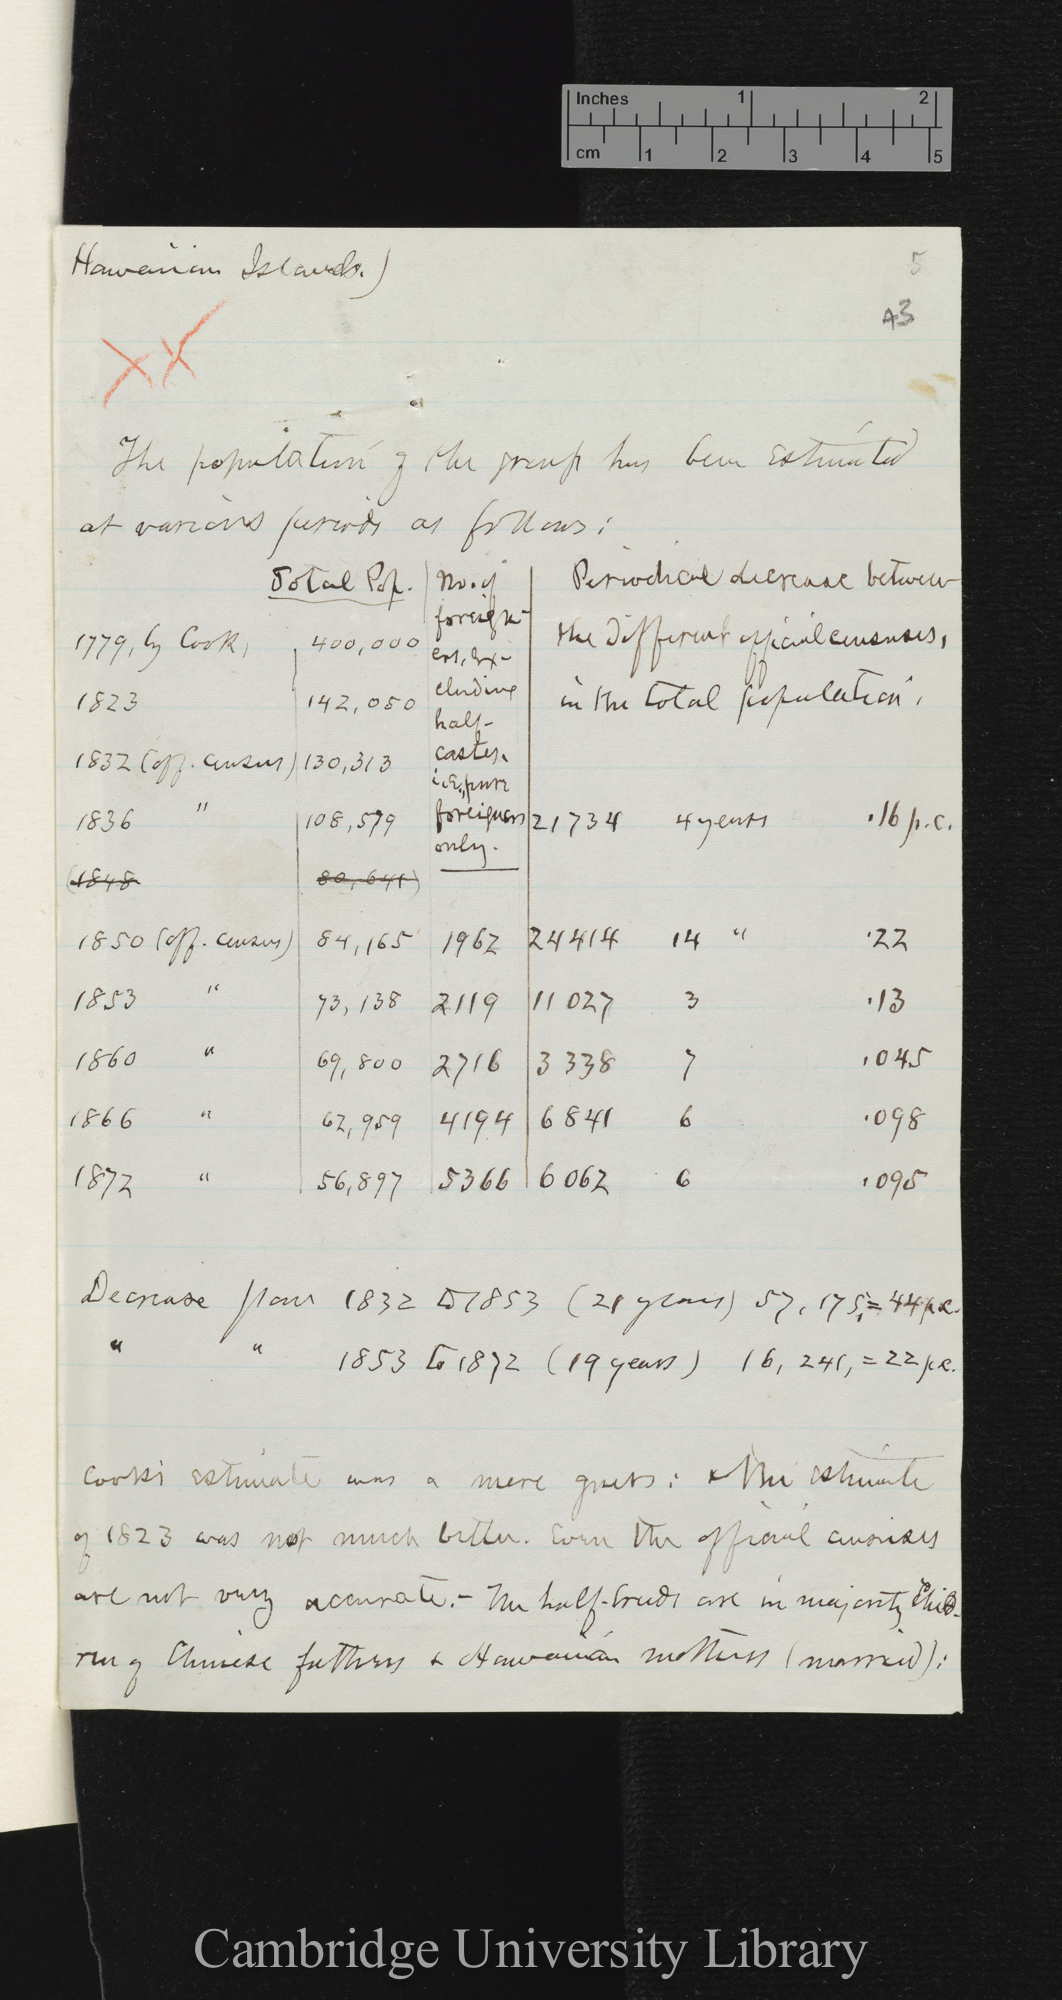 Inches 1 2
cm 1 2 3 4 5
Hawaiian Islands.)
5
43
XX
The population of the group has been estimated
at various periods as follows:
Total Pop.
No. of
foreign-
ers, ex-
cluding
half-
castes.
i.e., pure
foreigners
only.
Periodical decrease between
the different official censuses,
in the total population.
1779, by Cook, 400,000
1823 142,050
1832 (off. census) 130,313
1836 " 108,579 21734 4 years .16 p.c.
(1848 80,641)
1850 (off. census) 84,165 1962 24414 14 " .22
1853 " 73,138 2119 11027 3 .13
1860 " 69,800 2716 3338 7 .045
1866 " 62,959 4194 6841 6 .098
1872 " 56,897 5366 6062 6 .095
Decrease from 1832 to 1853 (21 years) 57,175, = 44 p.c.
" " 1853 to 1872 (19 years) 16,241, = 22 p.c.
Cook's estimate was a mere guess: & the estimate
of 1823 was not much better. Even the official censuses
are not very accurate. - The half-breeds are in majority Child-
ren of Chinese fathers & Hawaiian mothers (married):
Cambridge University Library